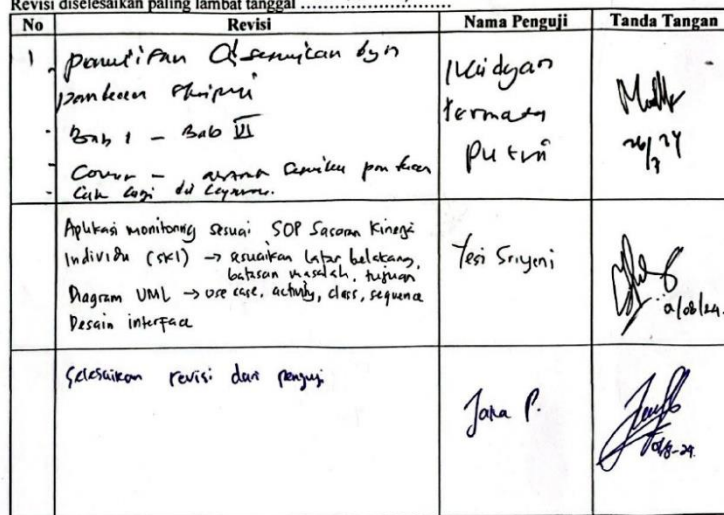 Revisi diselesaikan paling lambat tanggal ..............................
No Revisi Nama Penguji Tanda Tangan
1 - penulisan disesuaikan dgn
panduan skripsi
- Bab 1 - Bab VI
- Cover -
- Cek lagi
Putri
26/7 24
Aplikasi monitoring sesuai SOP Sasaran Kinerja
Individu (SKI) → sesuaikan latar belakang,
batasan masalah, tujuan
Diagram UML → use case, activity, class, sequence
Desain interface
Yesi Sriyeni
Selesaikan revisi dari penguji
Jaka P.